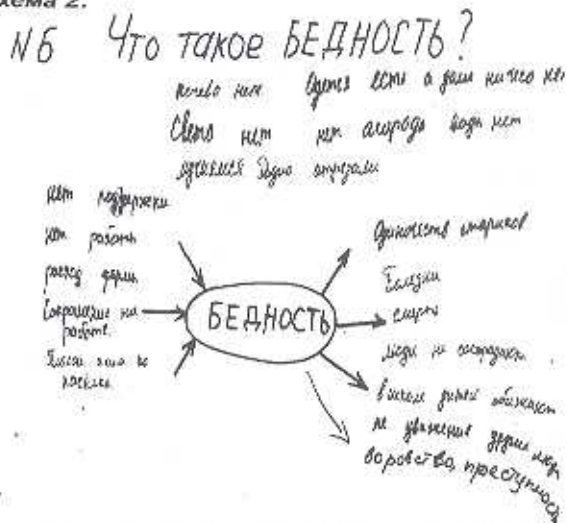 хема 2.
№6 Что такое БЕДНОСТЬ?
нет есть а дам ничего не
Света нет нет огорода воды нет
радио отрезали
нет поддержки
нет работы
развод
Сокращение на
работе
БЕДНОСТЬ
Одиночество стариков
Болезни
смерть
люди не сострадают
в школе детей обижают
не уважение других люд
воровство, преступность